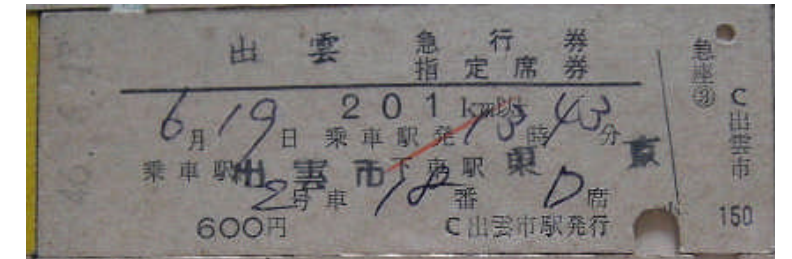 出雲 急行券
指定席券
201km以
6月19日 乗車駅発13時43分
乗車駅 出雲市 下車駅 東京
2号車 18番 D席
600円 C出雲市駅発行
急座③
C出雲市
150
小